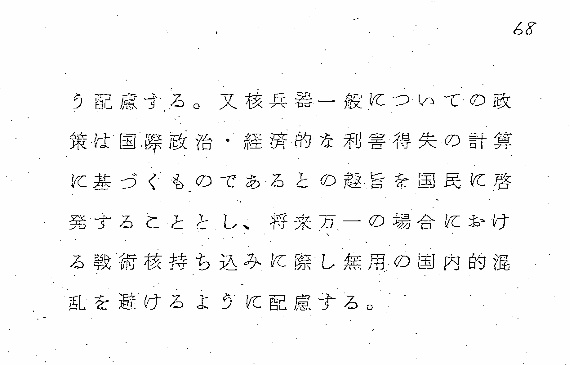 68
う配慮する。又核兵器一般についての政
策は国際政治・経済的な利害得失の計算
に基づくものであるとの趣旨を国民に啓
発することとし、将来万一の場合におけ
る戦術核持ち込みに際し無用の国内的混
乱を避けるように配慮する。